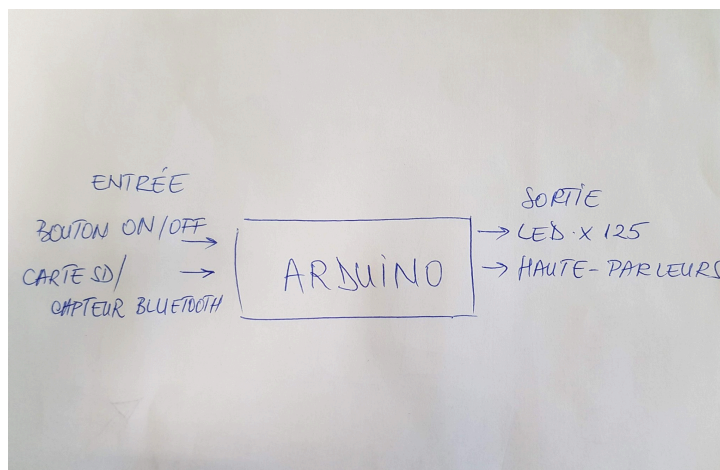 ENTRÉE
BOUTON ON/OFF
CARTE SD/
CAPTEUR BLUETOOTH
ARDUINO
SORTIE
LED X 125
HAUTE-PARLEURS